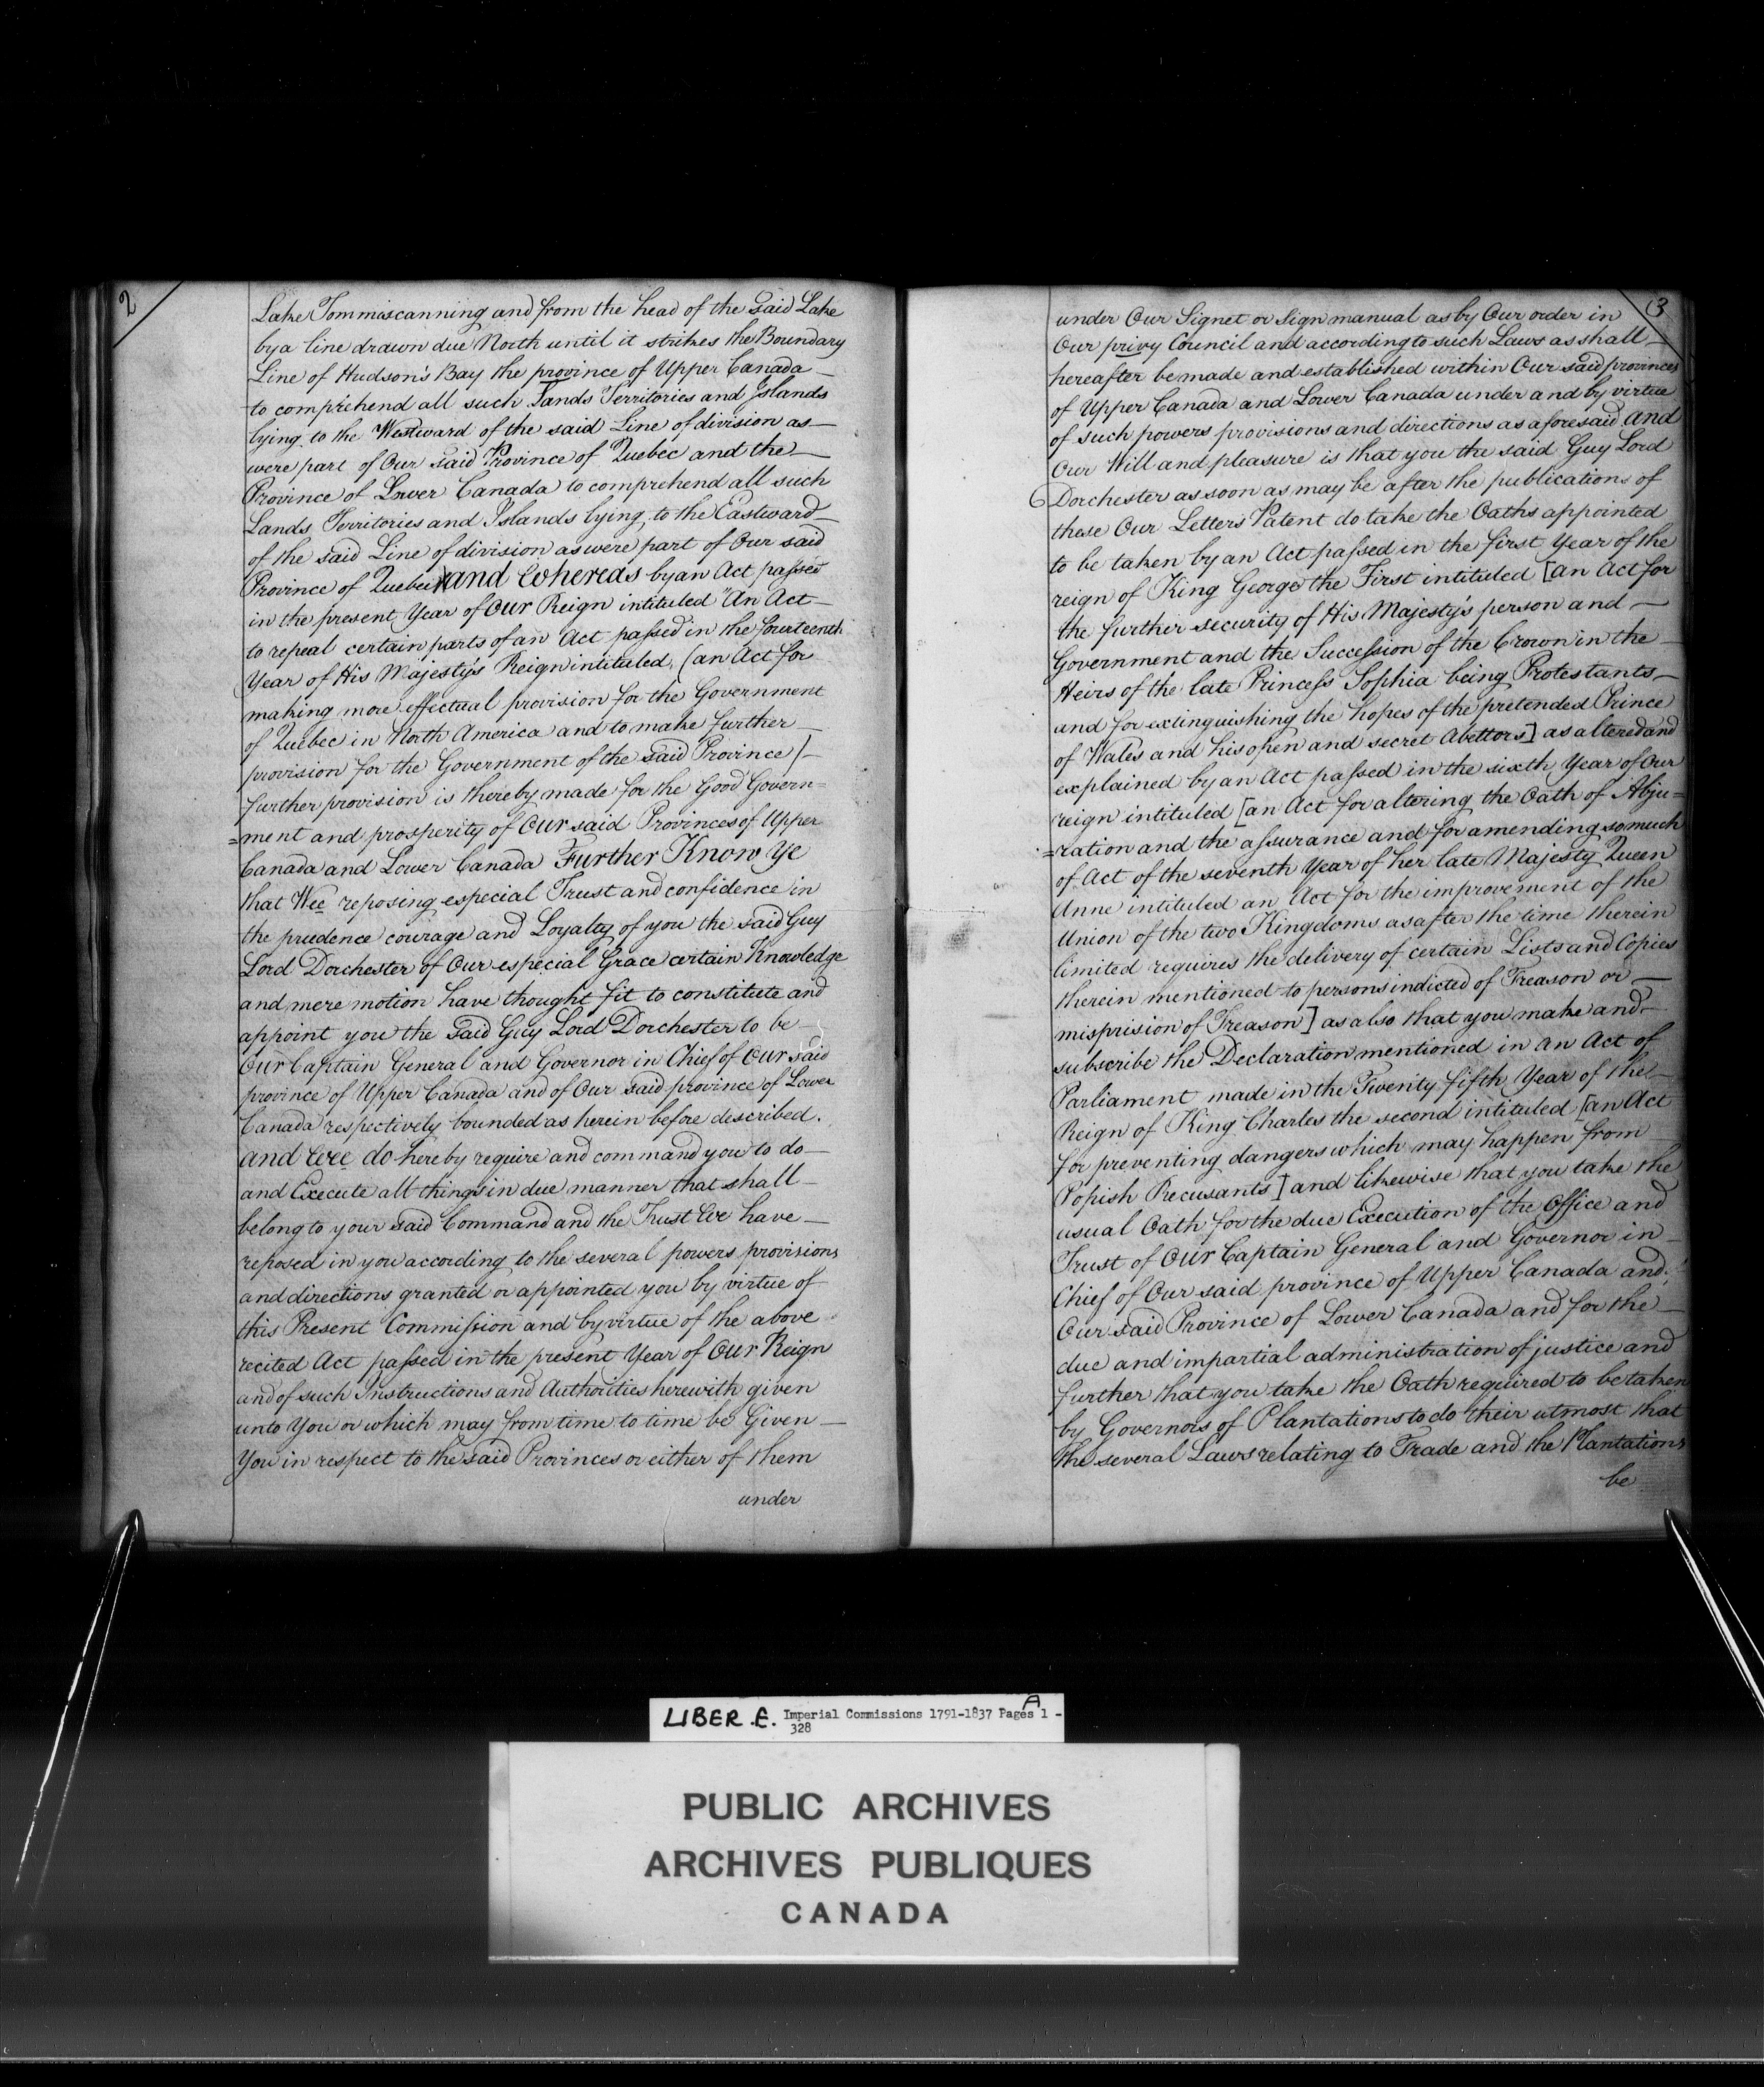 2
Lake Tommiscanning and from the head of the said Lake
by a line drawn due North until it strikes the Boundary
Line of Hudson's Bay the province of Upper Canada —
to comprehend all such Lands Territories and Islands
lying to the Westward of the said Line of division as —
were part of Our said Province of Quebec and the —
Province of Lower Canada to comprehend all such
Lands Territories and Islands lying to the Eastward —
of the said Line of division as were part of Our said
Province of Quebec and Whereas by an Act passed
in the present Year of Our Reign intituled "An Act —
to repeal certain parts of an Act passed in the fourteenth
Year of His Majesty's Reign intituled, (an Act for
making more effectual provision for the Government
of Quebec in North America and to make further —
provision for the Government of the said Province) —
further provision is thereby made for the Good Govern=
=ment and prosperity of Our said Provinces of Upper
Canada and Lower Canada Further Know Ye
that Wee reposing especial Trust and confidence in
the prudence courage and Loyalty of you the said Guy
Lord Dorchester of Our especial Grace certain Knowledge
and mere motion have thought fit to constitute and
appoint you the said Guy Lord Dorchester to be —
Our Captain General and Governor in Chief of Our said
province of Upper Canada and of Our said province of Lower
Canada respectively bounded as herein before described.
and Wee do hereby require and command you to do —
and Execute all things in due manner that shall —
belong to your said Command and the Trust We have —
reposed in you according to the several powers provisions
and directions granted or appointed you by virtue of
this Present Commission and by virtue of the above
recited Act passed in the present Year of Our Reign
and of such Instructions and Authorities herewith given
unto You or which may from time to time be Given —
You in respect to the said Provinces or either of them
under
3
under Our Signet or Sign manual as by Our order in
Our privy Council and according to such Laws as shall —
hereafter be made and established within Our said provinces
of Upper Canada and Lower Canada under and by virtue
of such powers provisions and directions as aforesaid and
Our Will and pleasure is that you the said Guy Lord
Dorchester as soon as may be after the publications of
these Our Letters Patent do take the Oaths appointed
to be taken by an Act passed in the first Year of the
reign of King George the First intituled [an Act for
the further security of His Majesty's person and —
Government and the Succession of the Crown in the —
Heirs of the late Princess Sophia being Protestants —
and for extinguishing the hopes of the pretended Prince
of Wales and his open and secret Abettors] as altered and
explained by an Act passed in the sixth Year of Our
reign intituled [an Act for altering the Oath of Abju=
=ration and the assurance and for amending so much
of Act of the seventh Year of her late Majesty Queen
Anne intituled an Act for the improvement of the
Union of the two Kingdoms as after the time therein
limited requires the delivery of certain Lists and Copies
therein mentioned to persons indicted of Treason or —
misprision of Treason] as also that you make and —
subscribe the Declaration mentioned in an Act of
Parliament made in the Twenty fifth Year of the —
Reign of King Charles the second intituled [an Act
for preventing dangers which may happen from
Popish Recusants] and likewise that you take the
usual Oath for the due Execution of the Office and
Trust of Our Captain General and Governor in —
Chief of Our said province of Upper Canada and
Our said Province of Lower Canada and for the —
due and impartial administration of justice and
further that you take the Oath required to be taken
by Governors of Plantations to do their utmost that
the several Laws relating to Trade and the Plantations
be
LIBER.E. Imperial Commissions 1791-1837 Pages A 1 -
328
PUBLIC ARCHIVES
ARCHIVES PUBLIQUES
CANADA